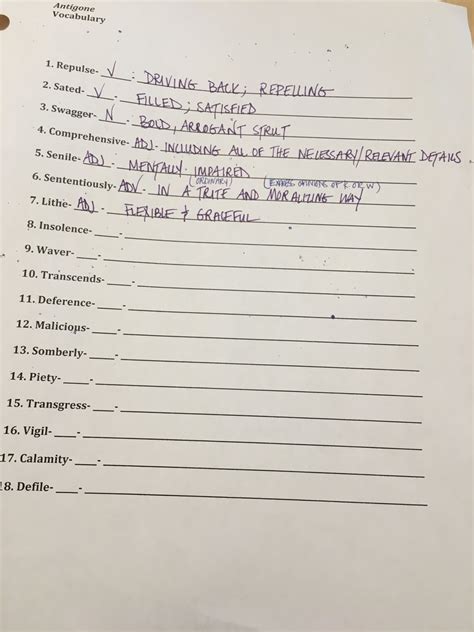 Antigone
Vocabulary
1. Repulse- V : DRIVING BACK; REPELLING
2. Sated- V - FILLED; SATISFIED
3. Swagger- N - BOLD, ARROGANT STRUT
4. Comprehensive- ADJ- INCLUDING ALL OF THE NECESSARY/RELEVANT DETAILS
5. Senile- ADJ - MENTALLY IMPAIRED
(ORDINARY) (EXPRESS OPINIONS OF R. OR W)
6. Sententiously- ADV - IN A TRITE AND MORALIZING WAY
7. Lithe- ADJ - FLEXIBLE & GRACEFUL
8. Insolence- ____-
9. Waver- ____-
10. Transcends- ____-
11. Deference- ____-
12. Malicious- ____-
13. Somberly- ____-
14. Piety- ____-
15. Transgress- ____-
16. Vigil- ____-
17. Calamity- ____-
18. Defile- ____-